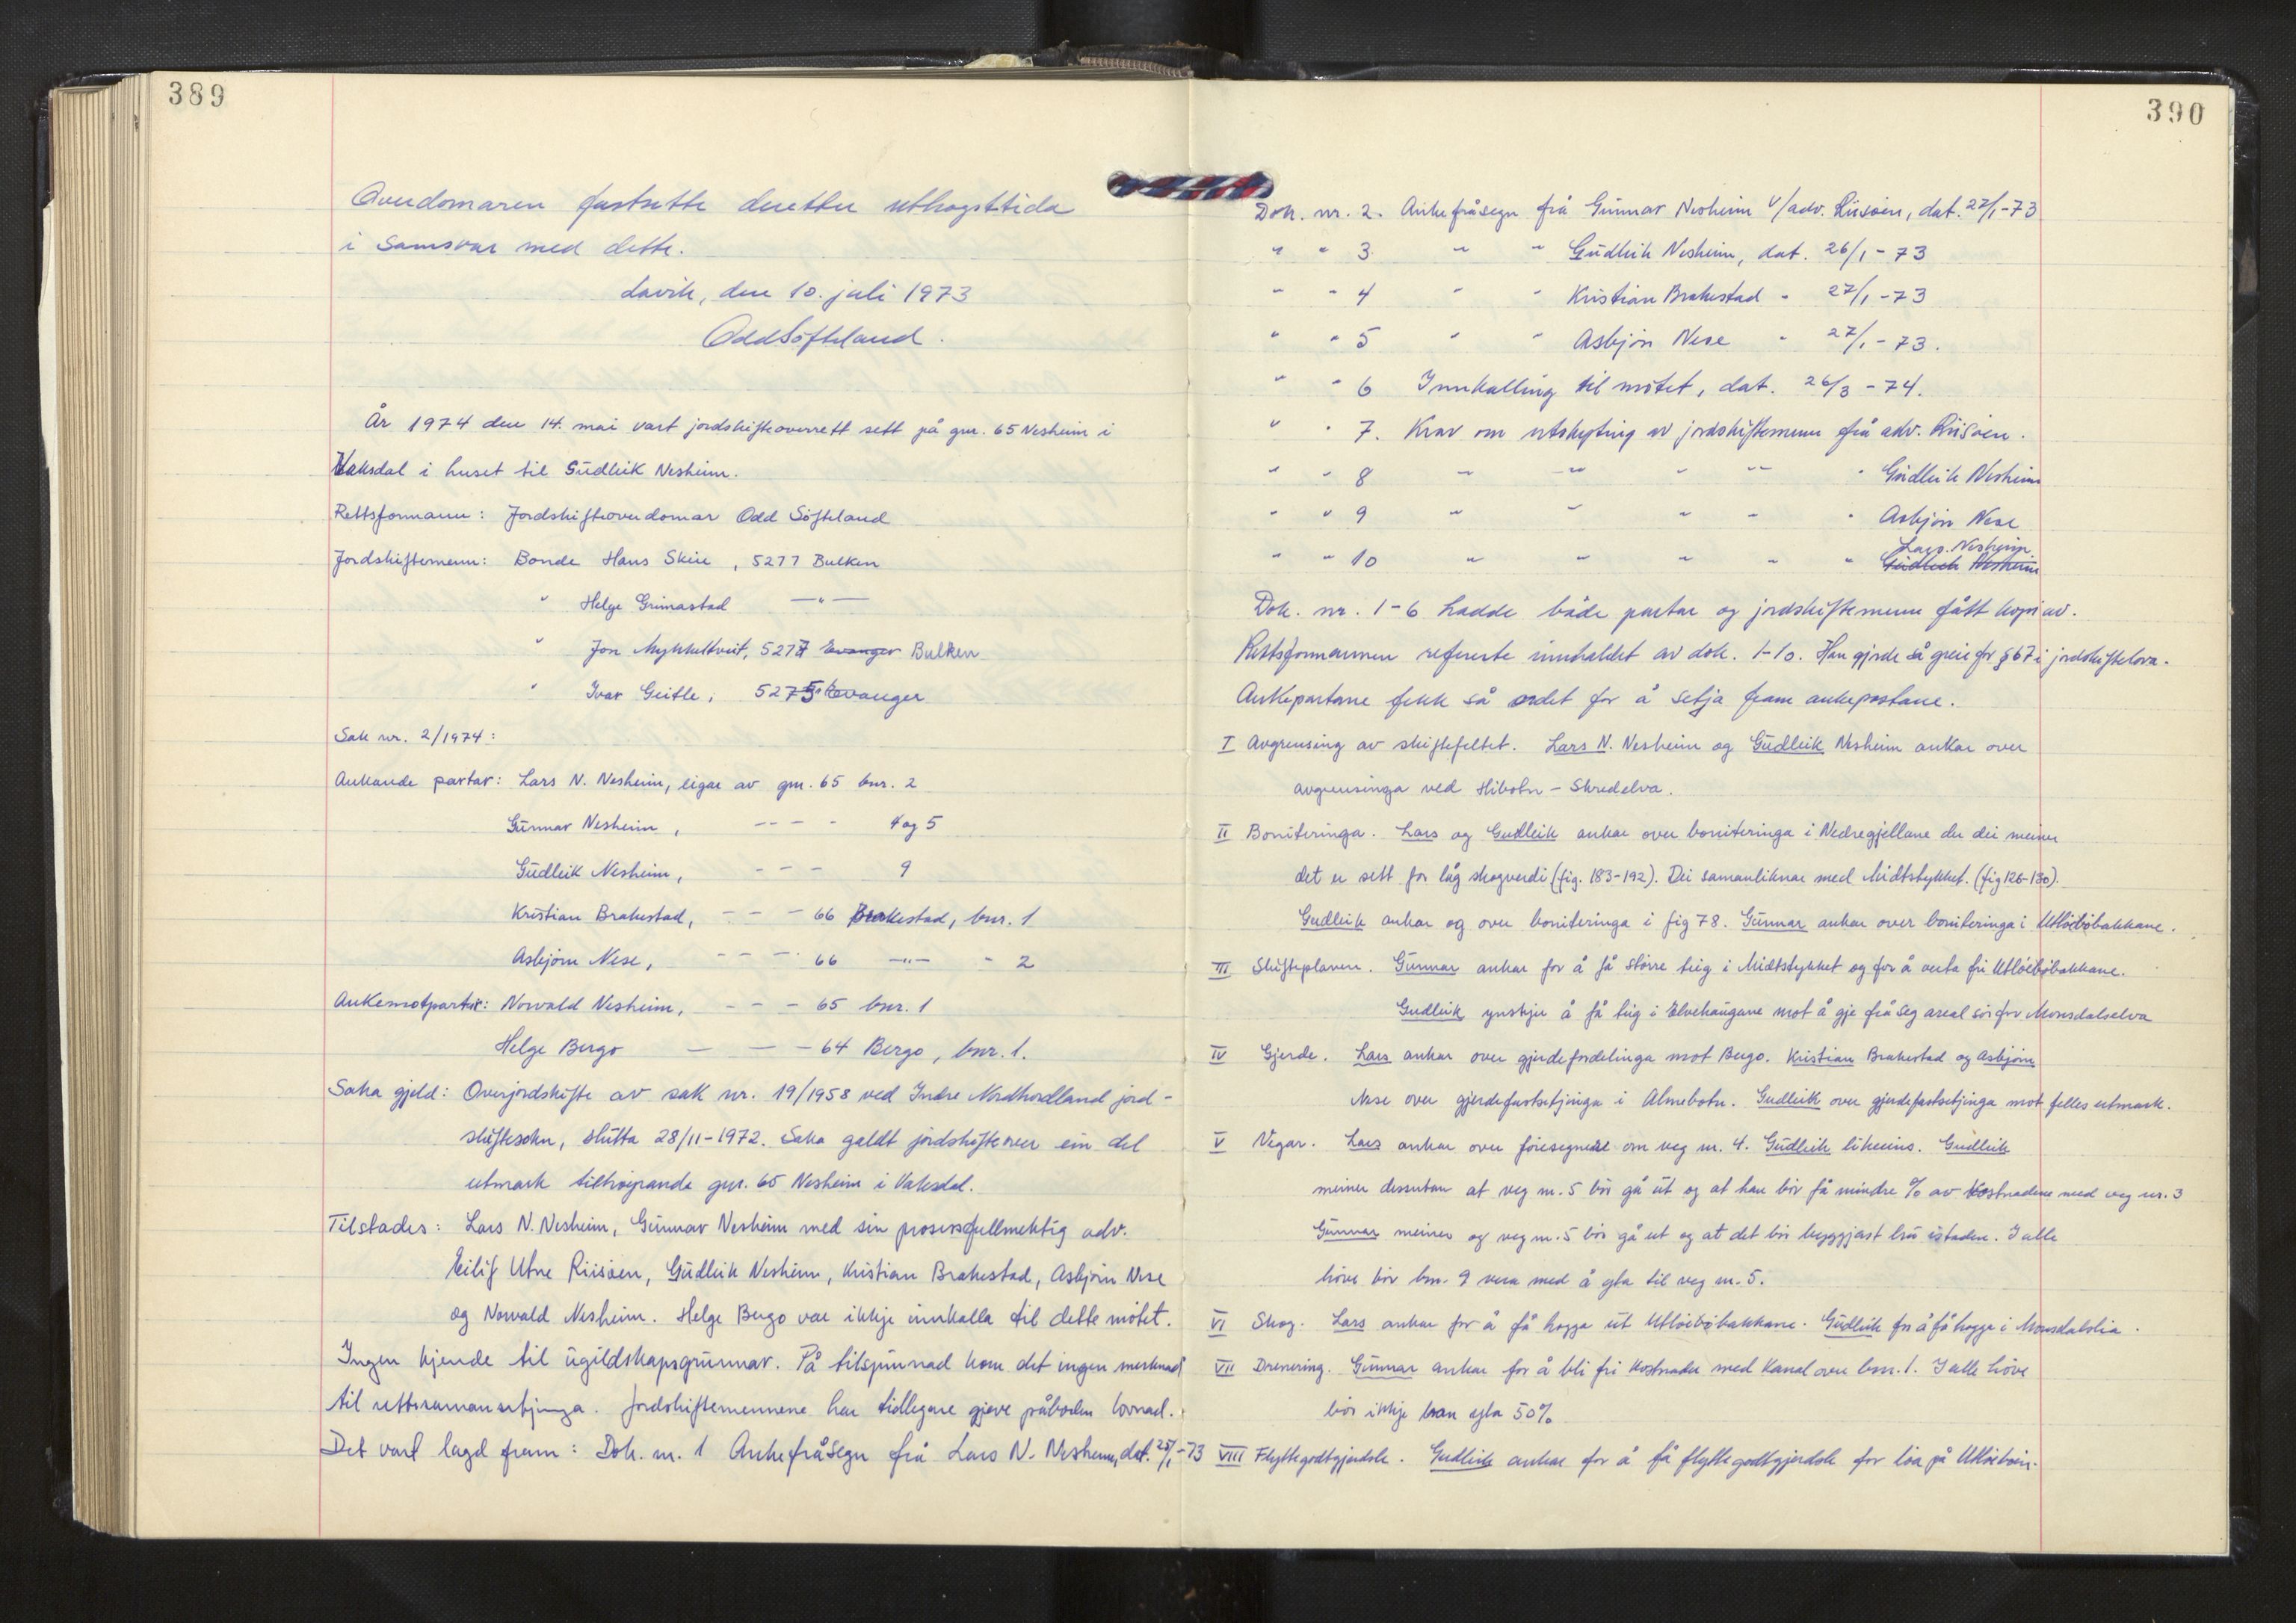 389
Overdomaren fastsette deretter uthogsttida
i samsvar med dette.
Lavik, den 10. juli 1973
Odd Söfteland.
År 1974 den 14. mai vart jordskifteoverrett sett på gnr. 65 Nesheim i
Vaksdal i huset til Gudleik Nesheim.
Rettsformann: Jordskifteoverdomar Odd Söfteland
Jordskiftemenn: Bonde Hans Skeie, 5277 Bulken
" Helge Grimastad —"—
" Jon Mykkeltveit, 5277 Evanger Bulken
" Ivar Geitle, 5275 Evanger
Sak nr. 2/1974:
Ankande partar: Lars N. Nesheim, eigar av gnr. 65 bnr. 2
Gunnar Nesheim, - - - - 4 og 5
Gudleik Nesheim, - - - 9
Kristian Brakestad, - - - 66 Brakestad, bnr. 1
Asbjörn Nese, - - - 66 —"— - 2
Ankemotpartar: Norvald Nesheim, - - - 65 bnr. 1
Helge Bergo — — - 64 Bergo, bnr. 1.
Saka gjeld: Overjordskifte av sak nr. 19/1958 ved Indre Nordhordland jord-
skiftesokn, slutta 28/11-1972. Saka galdt jordskifte over ein del
utmark tilhøyrande gnr. 65 Nesheim i Vaksdal.
Tilstades: Lars N. Nesheim, Gunnar Nesheim med sin prosessfullmektig adv.
Eilif Utne Riisöen, Gudleik Nesheim, Kristian Brakestad, Asbjörn Nese
og Norvald Nesheim. Helge Bergo var ikkje innkalla til dette mötet.
Ingen kjende til ugildskapsgrunnar. På tilspurnad kom det ingen merknad
til rettssamansetjinga. Jordskiftemennene har tidlegare gjeve påboden lovnad.
Det vart lagd fram: Dok. nr. 1 Ankefråsegn frå Lars N. Nesheim, dat. 25/1-73
390
Dok. nr. 2. Ankefråsegn frå Gunnar Nesheim v/adv. Riisöen, dat. 27/1-73
" " 3 " " Gudleik Nesheim, dat. 26/1-73
" " 4 " " Kristian Brakestad " 27/1-73
" " 5 " " Asbjörn Nese " 27/1-73.
" " 6 Innkalling til mötet, dat. 26/3-74.
" " 7. Krav om utskyting av jordskiftemenn frå adv. Riisöen.
" " 8 " " " " " Gudleik Nesheim
" " 9 " " " " " Asbjörn Nese
" " 10 " " " " " Lars Nesheim
Gudleik Nesheim
Dok. nr. 1-6 hadde både partar og jordskiftemenn fått kopi av.
Rettsformannen refererte innhaldet av dok. 1-10. Han gjorde så greie for § 67 i jordskiftelova.
Ankepartane fekk så ordet for å setja fram ankepostane.
I Avgrensing av skiftefeltet. Lars N. Nesheim og Gudleik Nesheim ankar over
avgrensinga ved Hibotn - Skredelva.
II Boniteringa. Lars og Gudleik ankar over boniteringa i Nedregjellane der dei meiner
det er sett for låg skogverdi (fig. 183-192). Dei samanliknar med Midtstykket. (fig 126-130).
Gudleik ankar og over boniteringa i fig 78. Gunnar ankar over boniteringa i Utlöeböbakkane.
III Skifteplanen. Gunnar ankar for å få större teig i Midtstykket og for å verta fri Utlöeböbakkane.
Gudleik ynskjer å få teig i Elvehaugane mot å gje frå seg areal sör for Monsdalselva
IV Gjerde. Lars ankar over gjerdefordelinga mot Bergo. Kristian Brakestad og Asbjörn
Nese over gjerdefastsetjinga i Almebotn. Gudleik over gjerdefastsetjinga mot felles utmark.
V Vegar. Lars ankar over föresegnene om veg nr. 4. Gudleik likeeins. Gudleik
meiner dessutan at veg nr. 5 bör gå ut og at han bör få mindre % av kostnadene med veg nr. 3
Gunnar meiner og veg nr. 5 bör gå ut og at det bör byggjast bru istaden. I alle
höve bör bnr. 9 vera med å yta til veg nr. 5.
VI Skog. Lars ankar for å få hogga ut Utlöeböbakkane. Gudleik for å få hogge i Monsdalslia.
VII Drenering. Gunnar ankar for å bli fri kostnader med kanal over bnr. 1. I alle höve
bör ikkje han yta 50%
VIII Flyttegodtgjerdsle. Gudleik ankar for å få flyttegodtgjerdsle for löa på Utlöeböen.